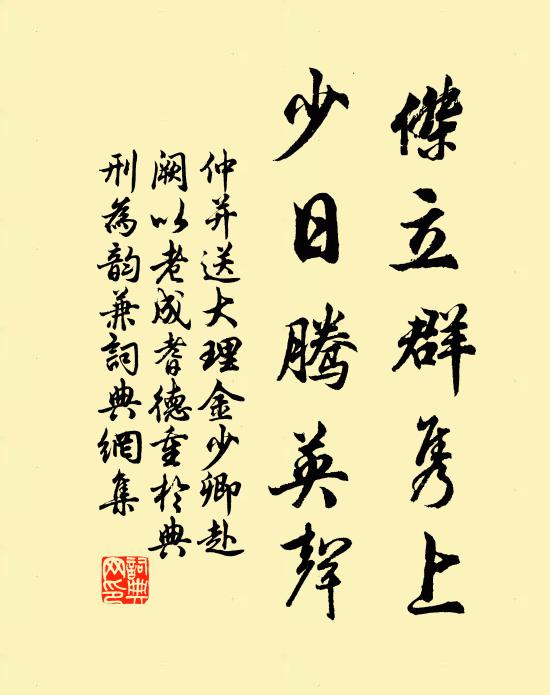 傑立群雋上
少日騰英聲
仲并送大理金少卿赴
闕以老成耆德重於典
刑為韵兼詞典網集
詞典网印